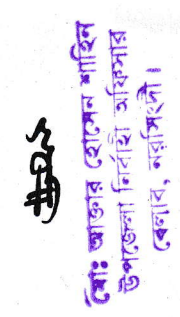 মোঃ আক্তার হোসেন শাহিন
উপজেলা নির্বাহী অফিসার
বেলাব, নরসিংদী।